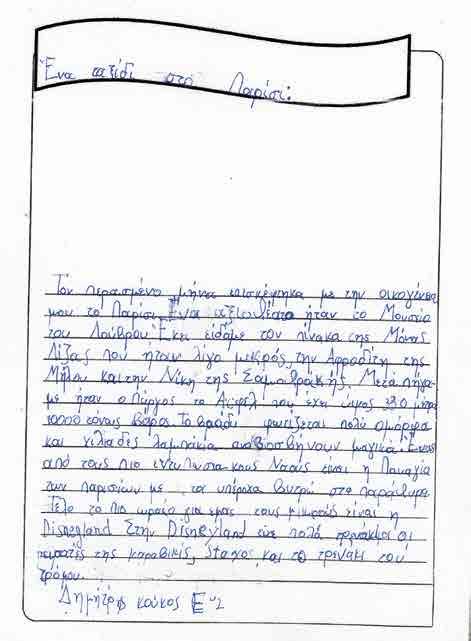 Ένα ταξίδι στο Παρίσι:
Τον περασμένο μήνα επισκέφτηκα με την οικογένεια
μου το Παρίσι Ένα αξιοθέατο ήταν το Μουσείο
του Λούβρου Εκεί είδαμε τον πίνακα της Μόνας
Λίζας που ήταν λίγο μικρός, την Αφροδίτη της
Μήλου και την Νίκη της Σαμοθράκης. Μετά πήγα-
με ήταν ο Πύργος το Αϊφελ που έχει ύψος 320 μέτρα
10000 τόνους βάρος. Το βράδυ φωτίζεται πολύ όμορφα
και χιλιάδες λαμπάκια αναβοσβήνουν μαγικά. Ένας
από τους πιο εντυπωσιακούς Ναούς είναι η Παναγία
των παρισίων με τα υπέροχα βιτρώ στα παράθυρα
Τέλο το πιο ωραίο για εμάς τους μικρούς είναι η
Disneyland Στην Disneyland είχε πολλά οι
πειρατές της καραβικής, και το τρενάκι του
τρόμου.
Δημήτρη κούκος Ε΄2